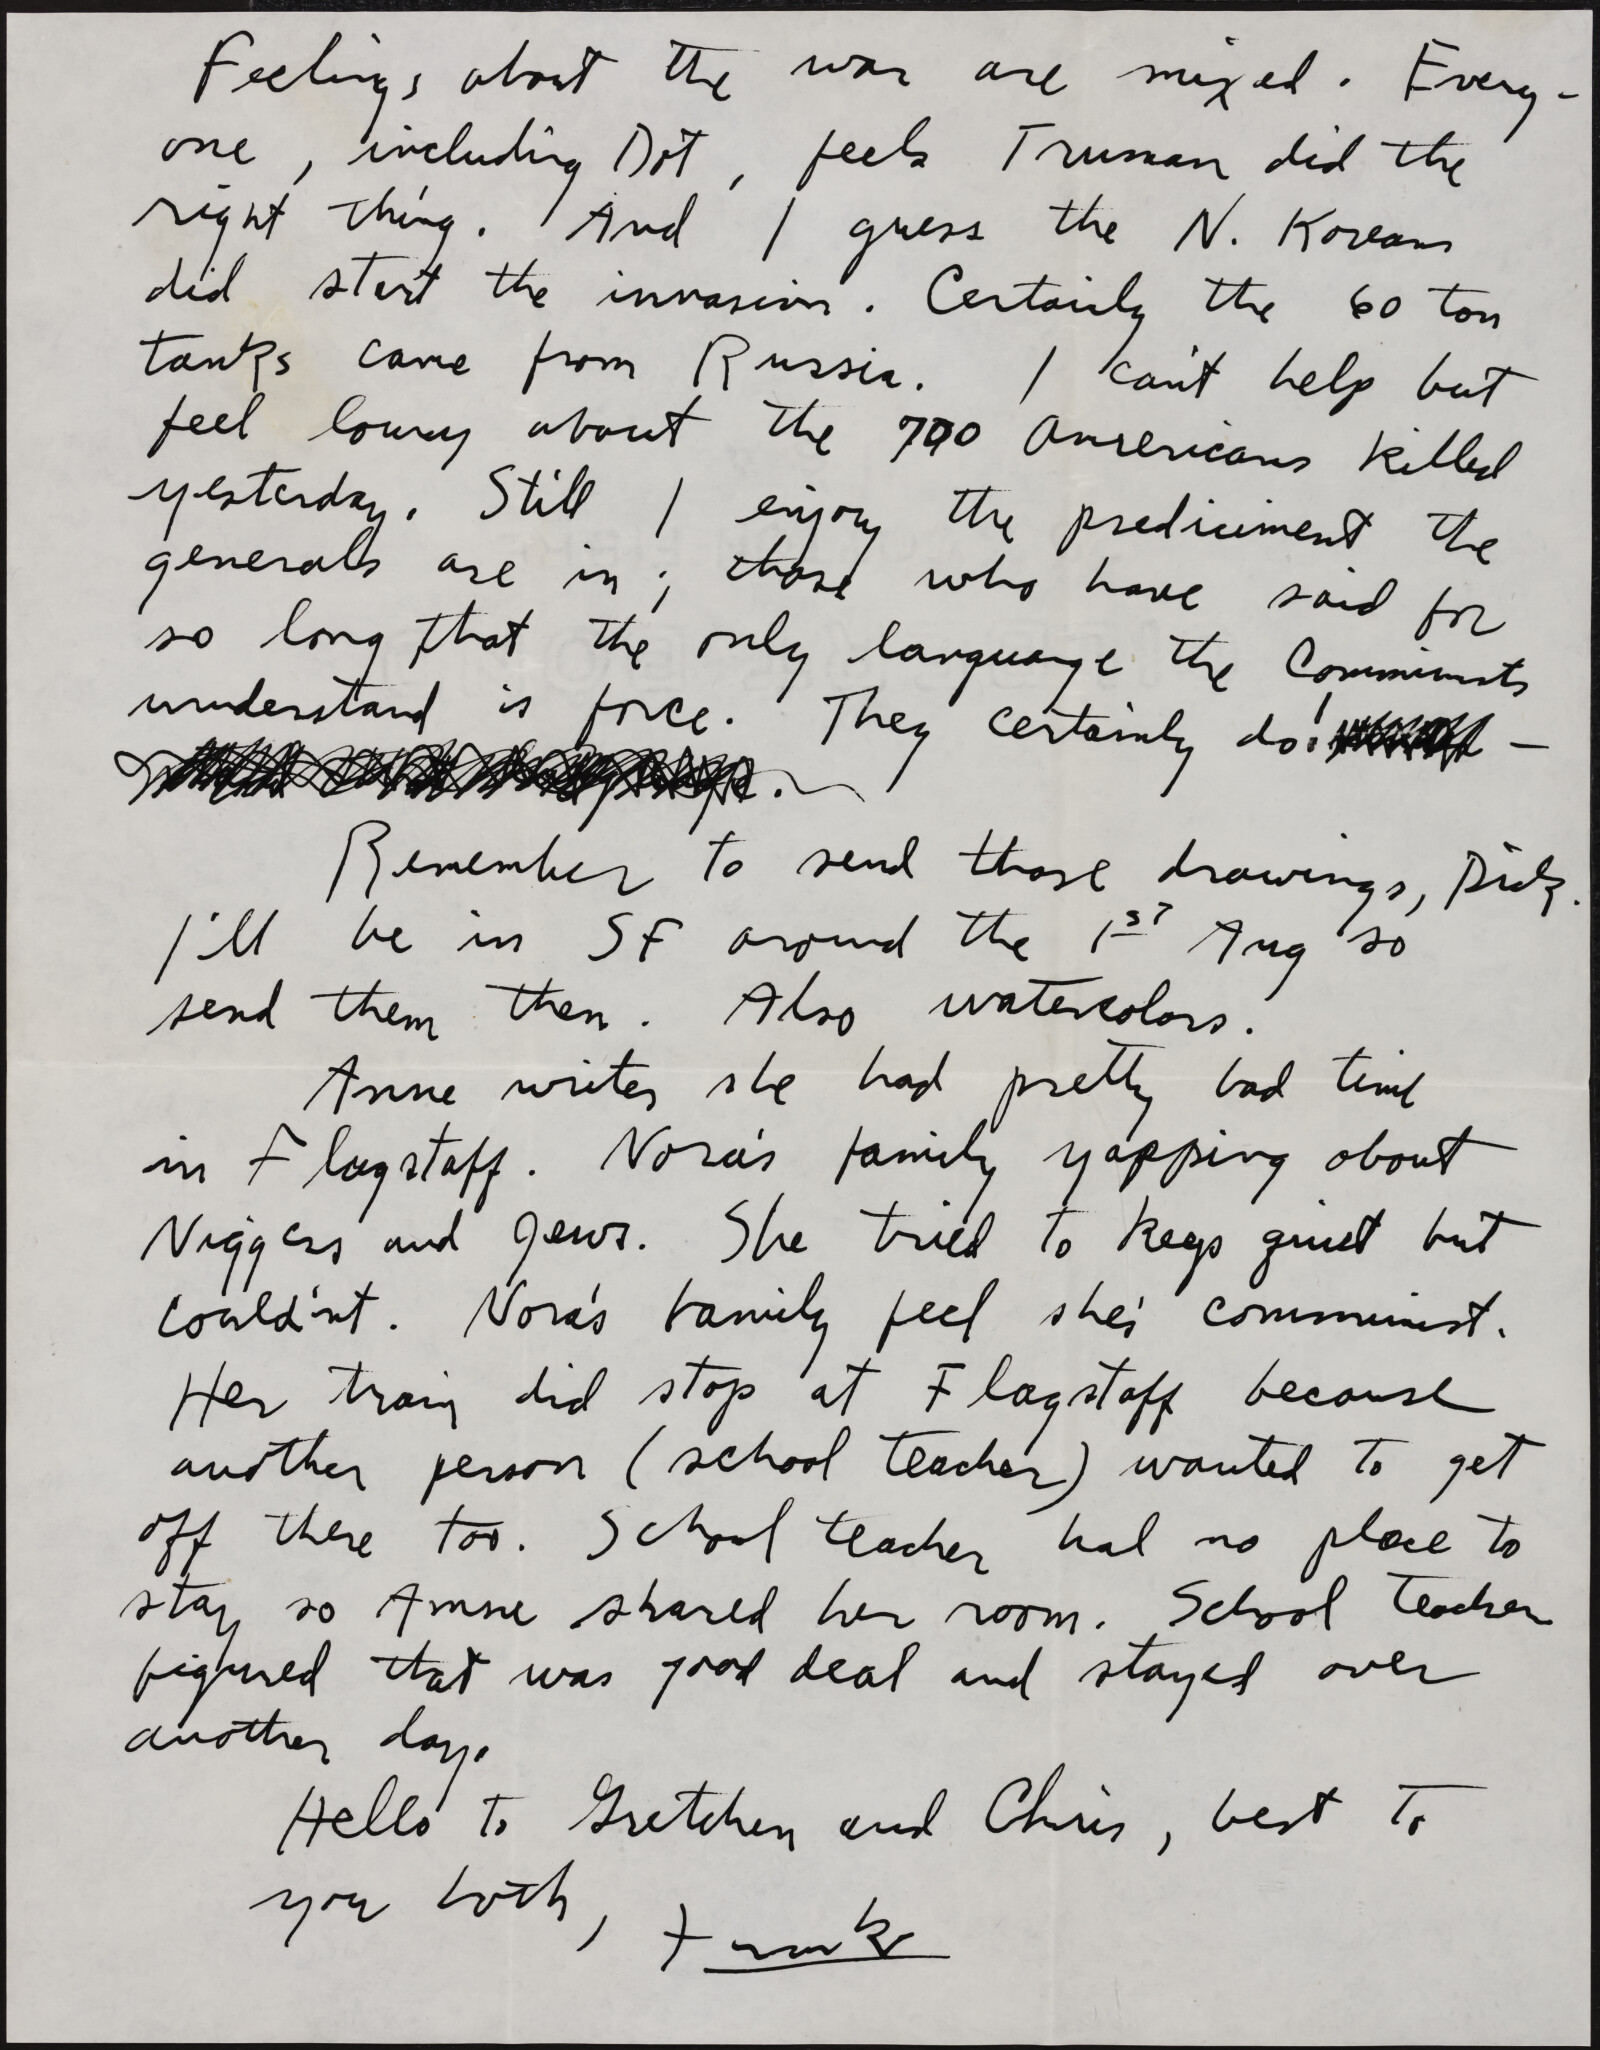 Feelings about the war are mixed. Every-
one, including Dot, feels Truman did the
right thing. And I guess the N. Koreans
did start the invasion. Certainly the 60 ton
tanks came from Russia. I can't help but
feel lousy about the 700 Americans killed
yesterday. Still I enjoy the prediciment the
generals are in; those who have said for
so long that the only language the Communists
understand is force. They certainly do! —
Remember to send those drawings, Dick.
I'll be in SF around the 1st Aug so
send them then. Also watercolors.
Anne writes she had pretty bad time
in Flagstaff. Nora's family yapping about
Niggers and Jews. She tried to keep quiet but
could'nt. Nora's family feel she's communist.
Her train did stop at Flagstaff because
another person (school teacher) wanted to get
off there too. School teacher had no place to
stay so Anne shared her room. School teacher
figured that was good deal and stayed over
another day.
Hello to Gretchen and Chris, best to
you both, Frank